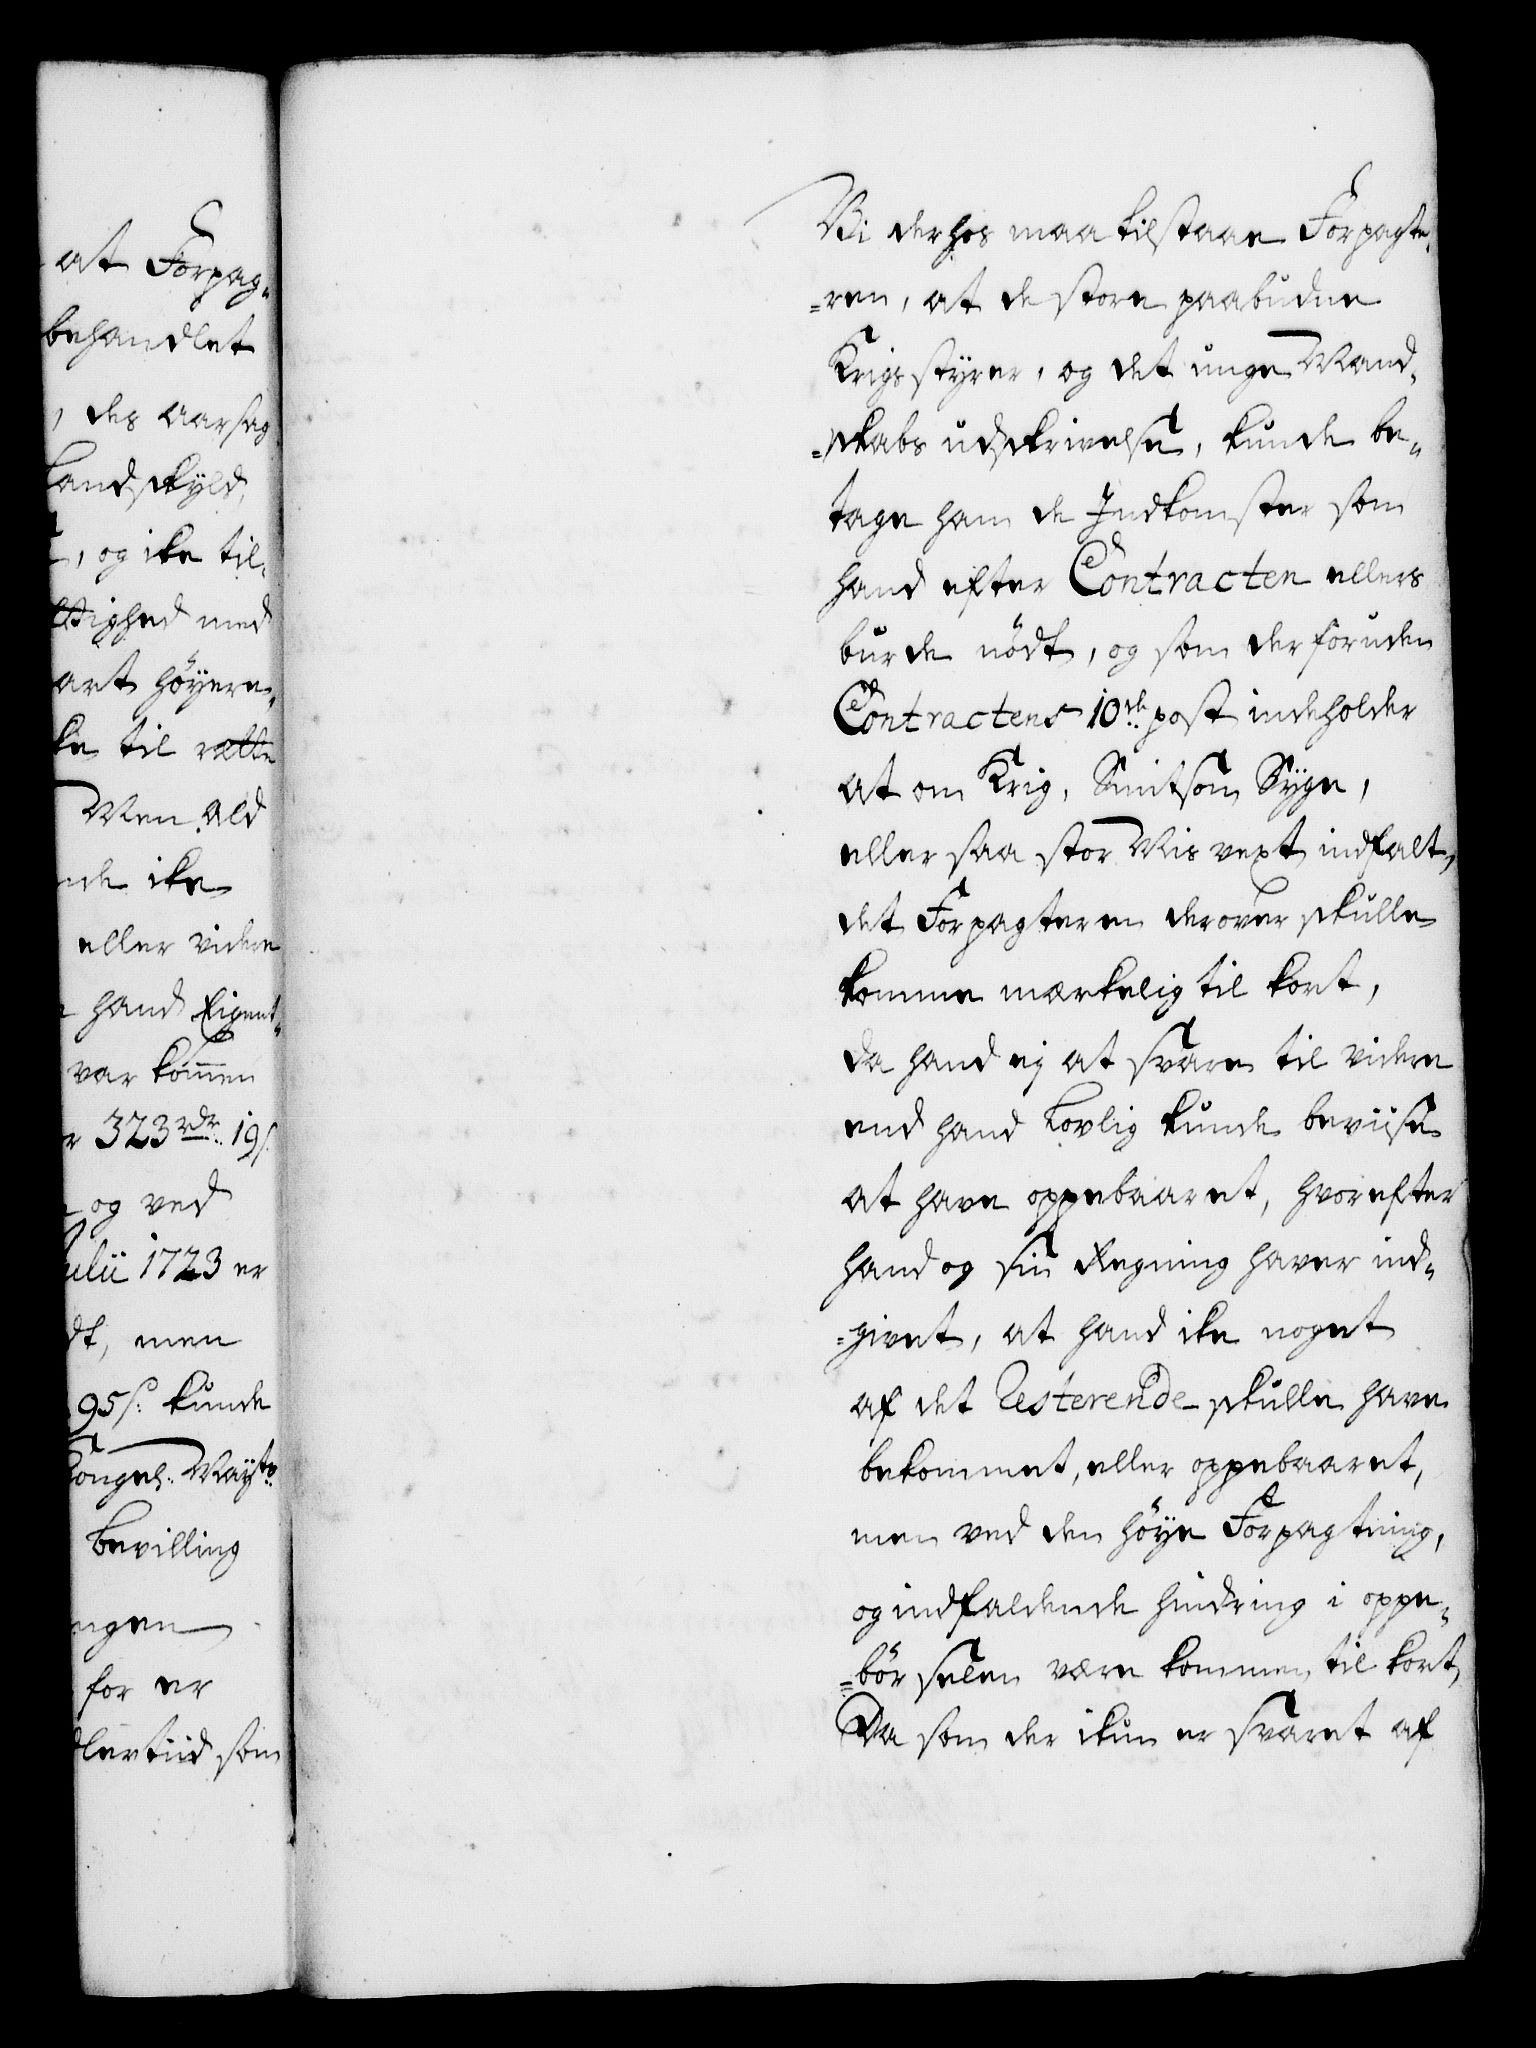 at Forpag-
behandlet
, des aarsag
Landskyld,
, og ike til-
ttighed med
art höyere,
ke til rette
Men ald
nde ike
eller videre
hand Eigent-
var kommen
r 323 rdr. 19 s.
og ved
ulii 1723 er
dt, men
95 s. kunde
Kongel. Mayts.
bevilling
ngen
for er
dlertiid som
Vi derhos maa tilstaae Forpagte-
=ren, at de store paabudne
Krigs styrer, og det unge Mand-
=skabs udskrivelse, kunde be-
tage ham de Indkomster som
hand efter Contracten ellers
burde nödt, og som der foruden
Contractens 10de post indeholder
at om Krig, Smitsom Syge,
eller saa stor Mis vext indfalt,
det Forpagteren derover skulle
komme mærkelig til kort,
da hand ej at svare til videre
end hand Lovlig kunde beviise
at have oppebaaret, hvorefter
hand og sin Regning haver ind-
=givet, at hand ike noget
af det Resterende skulle have
bekommet, eller oppebaaret,
men ved den höye Forpagtning,
og indfaldende hindring i oppe-
=börselen være kommen til kort,
Da som der ikun er svaret af